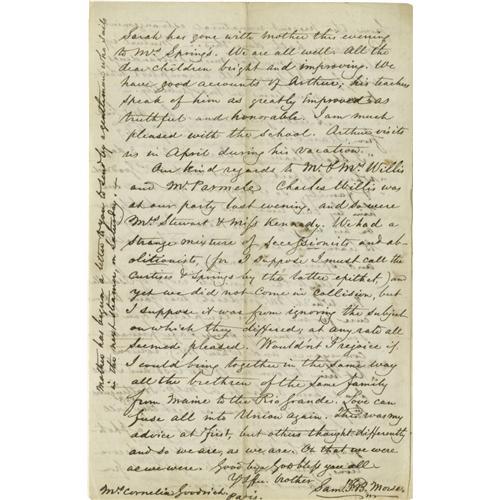 Sarah has gone with Mother this evening
to Mrs Springs. We are all well. All the
dear children bright and improving. We
have good accounts of Arthur; his teachers
speak of him as greatly improved as
truthful and honorable. I am much
pleased with the school. Arthur visits
us in April during his vacation.
Our kind regards to Mr. & Mrs Willis
and Mr Parmale. Charles Willis was
at our party last evening, and so were
Mrs. Stewart & Miss Kennedy. We had a
strange mixture of secessionists and ab-
olitionists, (for I suppose I must call the
Curtises & Springs by the latter epithet,) and
yet we did not come in collision, but
I suppose it was from ignoring the subject
on which they differed; at any rate all
seemed pleased. Wouldn't I rejoice if
I could bring together in the same way
all the brethren of the same family
from Maine to the Rio Grande. Love can
fuse all into Union again. This was my
advice at first, but others thought differently
and so we are, as we are. Oh that we were
as we were. Good bye God bless you all
Yr affec. brother
Saml. F. B. Morse
Mrs Cornelia Goodrich
Paris.
Mother has begun a letter to you to send by a gentleman who sails
in the next steamer, on Saturday.